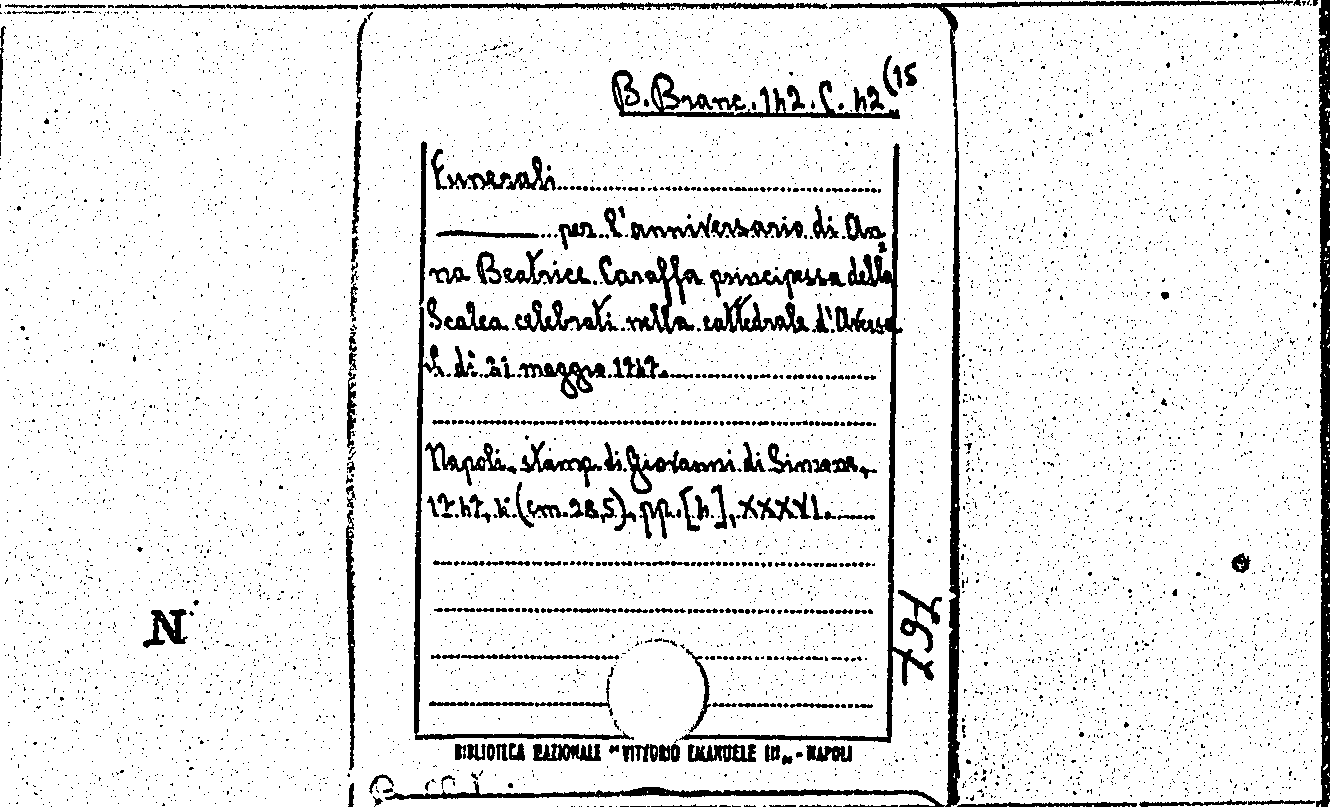 B. Branc. 142. C. 42 (15
Funerali
per l'anniversario di An=
na Beatrice Caraffa principessa della
Scalea celebrati nella cattedrale d'Aversa
il dì 21 maggio 1747.
Napoli, stamp. di Giovanni di Simone,
1747, 4° (cm. 28,5), pp. [4], XXXVI.
767
N
BIBLIOTECA NAZIONALE "VITTORIO EMANUELE III" - NAPOLI